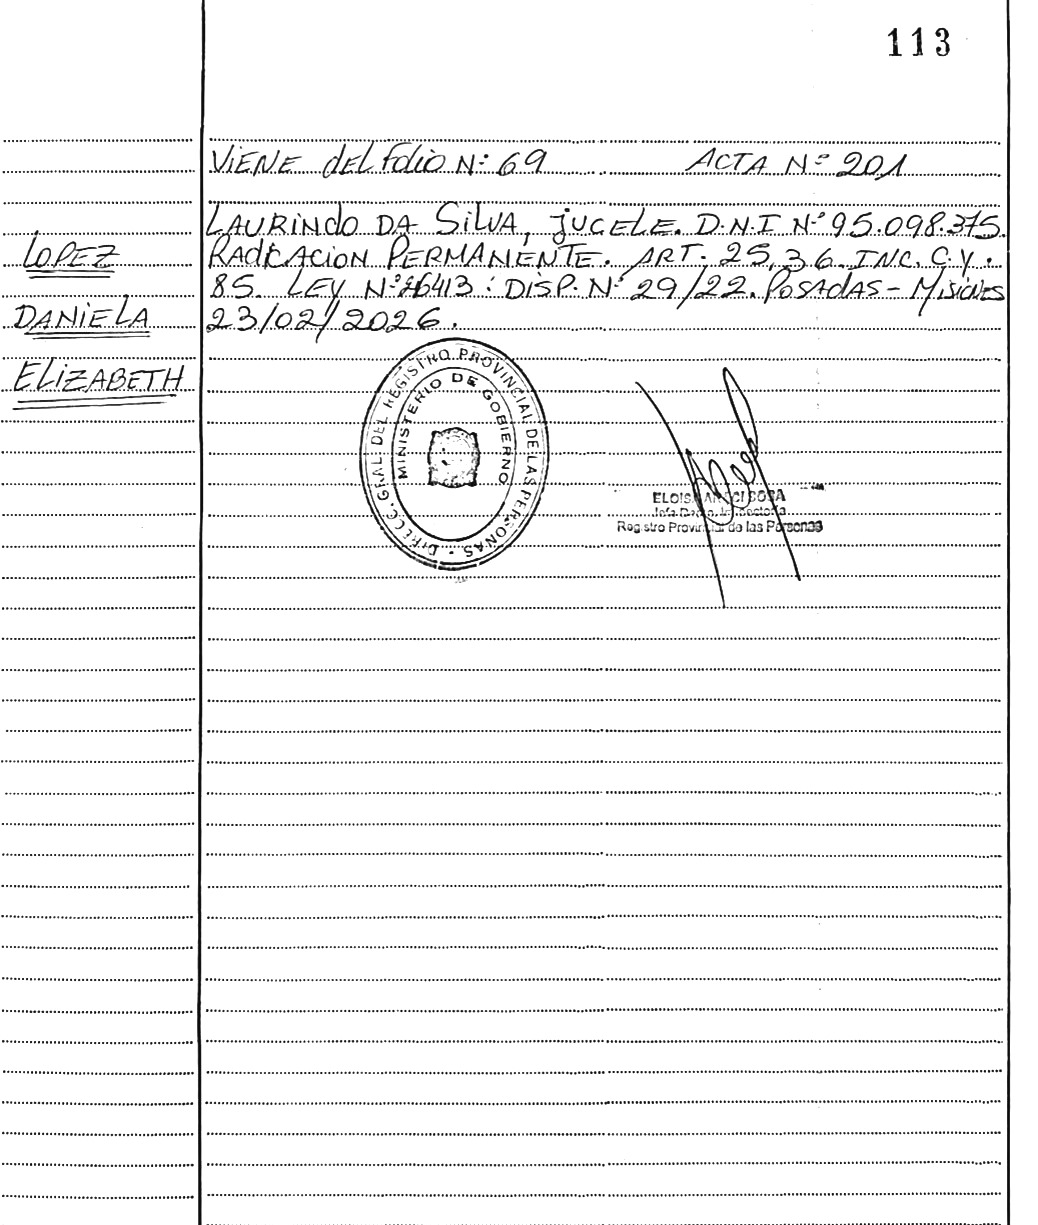 113
ViENE del Folio N: 69 ACTA Nº 201
LAURINdO DA SilVA, jUCELE. D.N.I Nº 95.098.375.
RadicACION PERMANENTE. ART. 25,36. INC. C.Y.
85. LEY Nº 26413: DiSP. Nº 29/22. POSAdAS - MiSiONES
23/02/2026.
LOPEZ
DANiELA
ELiZABETH
DIRECC. GRAL. DEL REGISTRO PROVINCIAL DE LAS PERSONAS
MINISTERIO DE GOBIERNO
SOSA
Registro Provincial de las Personas